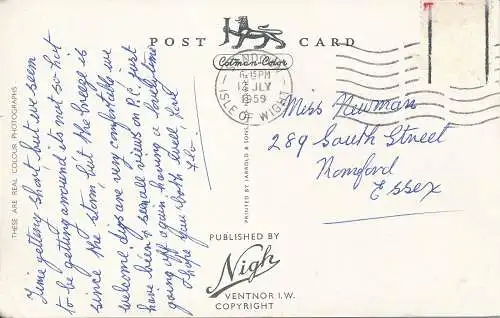 POST CARD
Cotman-Color
SANDOWN
6.15PM
12 JLY
1959
ISLE OF WIGHT
THESE ARE REAL COLOUR PHOTOGRAPHS
Time getting short, but we seem
to be getting around its not so hot
since the storm, but the breeze is
welcome digs are very comfortable we
have been & see all views on P.C. just
going off again having a lovely time
I hope you both well, love
Flo.
PRINTED BY JARROLD & SONS,
Miss Newman
289 South Street
Romford
Essex
PUBLISHED BY
Nigh
VENTNOR I.W.
COPYRIGHT